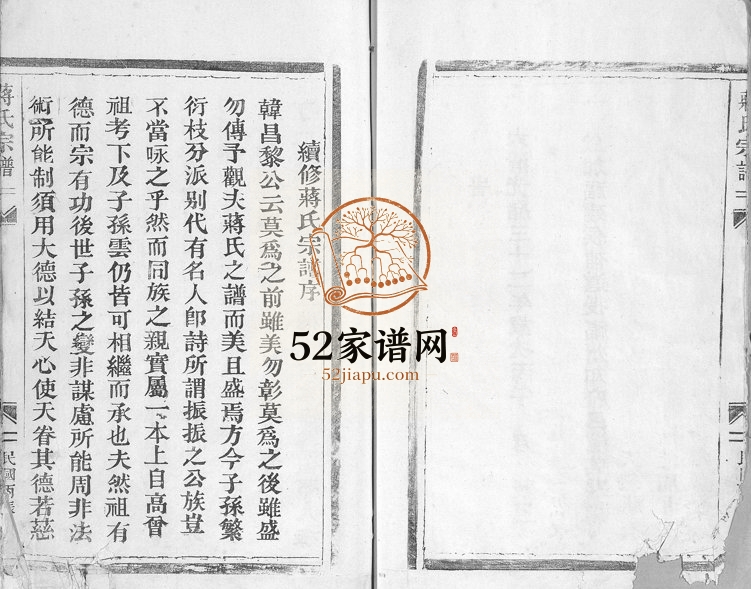 續修蔣氏宗譜序
韓昌黎公云莫爲之前雖美勿彰莫爲之後雖盛
勿傳予觀夫蔣氏之譜而美且盛焉方今子孫繁
衍枝分派别代有名人卽詩所謂振振之公族豈
不當咏之乎然而同族之親實屬一本上自高曾
祖考下及子孫雲仍皆可相繼而承也夫然祖有
德而宗有功後世子孫之變非謀慮所能周非法
術所能制須用大德以結天心使天眷其德若慈
蔣氏宗譜
民國丙辰
蔣氏宗譜
52家谱网
52jiapu.com